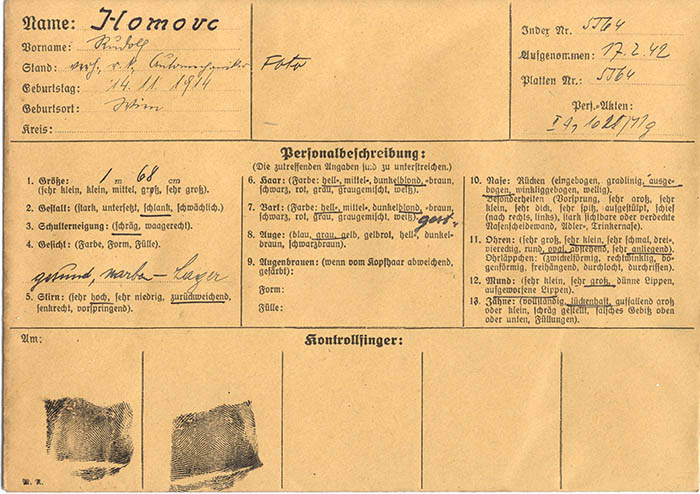 Name: Homovc
Vorname: Rudolf
Stand: verh, r.k. Automechaniker
Geburtslag: 14.11.1914
Geburtsort: Wien
Kreis:
Foto
Index Nr. 5564
Aufgenommen: 17.2.42
Platten Nr.: 5564
Pers.-Akten:
Personalbeschreibung:
(Die zutreffenden Angaben sind zu unterstreichen.)
1. Größe: 1 m 68 cm
(sehr klein, klein, mittel, groß, sehr groß).
2. Gestalt: (stark, untersetzt, schlank, schwächlich).
3. Schulterneigung: (schräg, waagerecht).
4. Gesicht: (Farbe, Form, Fülle).
gesund,
5. Stirn: (sehr hoch, sehr niedrig, zurückweichend,
senkrecht, vorspringend).
6. Haar: (Farbe: hell-, mittel-, dunkelblond, -braun,
schwarz, rot, grau, graugemischt, weiß).
7. Bart: (Farbe: hell-, mittel-, dunkelblond, -braun,
schwarz, rot, grau, graugemischt, weiß).
8. Auge: (blau, grau, gelb, gelbrot, hell-, dunkel-
braun, schwarzbraun).
9. Augenbrauen: (wenn vom Kopfhaar abweichend,
gefärbt):
Form:
Fülle:
10. Nase: Rücken (eingebogen, gradlinig, ausge-
bogen, winkliggebogen, wellig).
Besonderheiten (Vorsprung, sehr groß, sehr
klein, sehr dick, sehr spitz, aufgestülpt, schief
(nach rechts, links), stark sichtbare oder verdeckte
Nasenscheidewand, Adler-, Trinkernase).
11. Ohren: (sehr groß, sehr klein, sehr schmal, drei-,
viereckig, rund, oval, abstehend, sehr anliegend).
Ohrläppchen: (zwickelförmig, rechtwinklig, bo-
genförmig, freihängend, durchlocht, durchrissen).
12. Mund: (sehr klein, sehr groß, dünne Lippen,
aufgeworfene Lippen).
13. Zähne: (vollständig, lückenhaft, auffallend groß
oder klein, schräg gestellt, falsches Gebiß oben
oder unten, Füllungen).
Am:
Kontrollfinger: